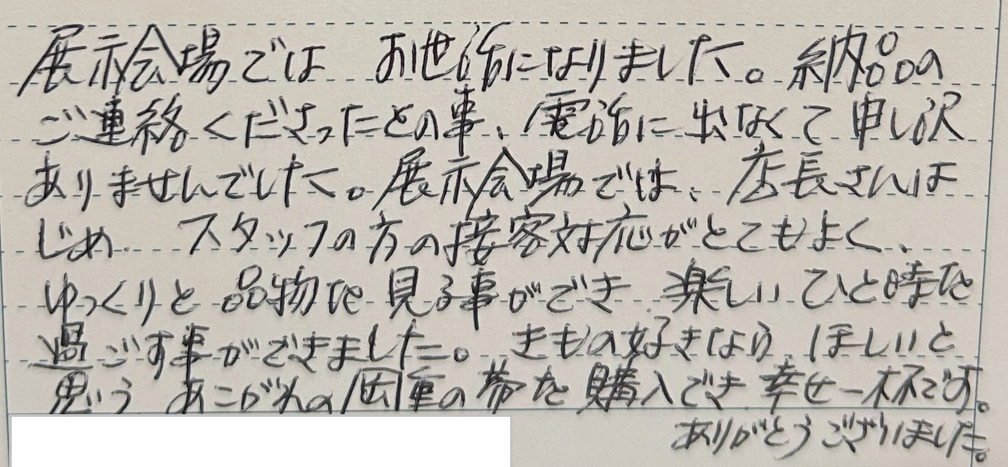 展示会場では お世話になりました。納品の
ご連絡くださったとの事、電話に出なくて申し訳
ありませんでした。展示会場では、店長さんは
じめ スタッフの方の接客対応がとてもよく、
ゆっくりと品物を見る事ができ 楽しいひと時を
過ごす事ができました。きもの好きなら、ほしいと
思う あこがれの 重の帯を購入でき 幸せ一杯です。
ありがとうございました。